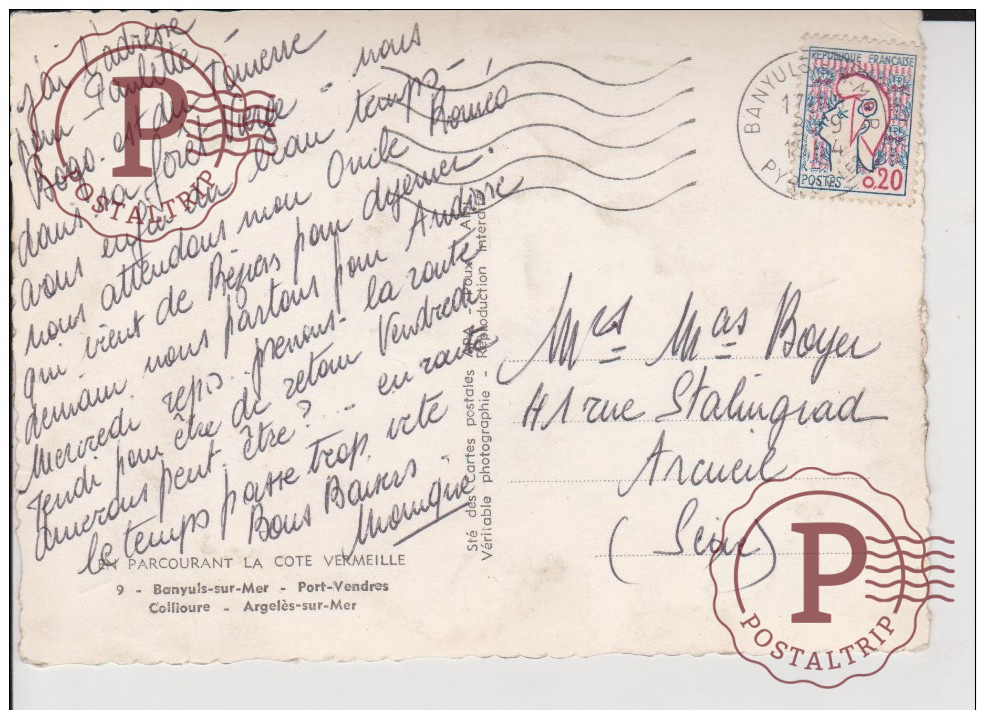 j'ai l'adresse
pour Paulette
Bogo. est du tonnerre
dans sa forêt vierge - nous
avons enfin du beau temps -
nous attendons mon Oncle Roméo
qui vient de Béziers pour dîner.
demain nous partons pour Andorre
Mercredi repos prenons la route
Jendi pour être de retour Vendredi
peut être? ... en route
le temps passe trop vite
Bons Baisers
Monique
EN PARCOURANT LA COTE VERMEILLE
9 - Banyuls-sur-Mer - Port-Vendres
Collioure - Argelès-sur-Mer
Sté des Cartes postales APA - Poux, Albi
Véritable photographie - Reproduction interdite
REPUBLIQUE FRANÇAISE
POSTES
0,20
BANYULS
Mes Mas Boyer
41 rue Stalingrad
Arcueil
(Seine)
P
POSTALTRIP
P
POSTALTRIP